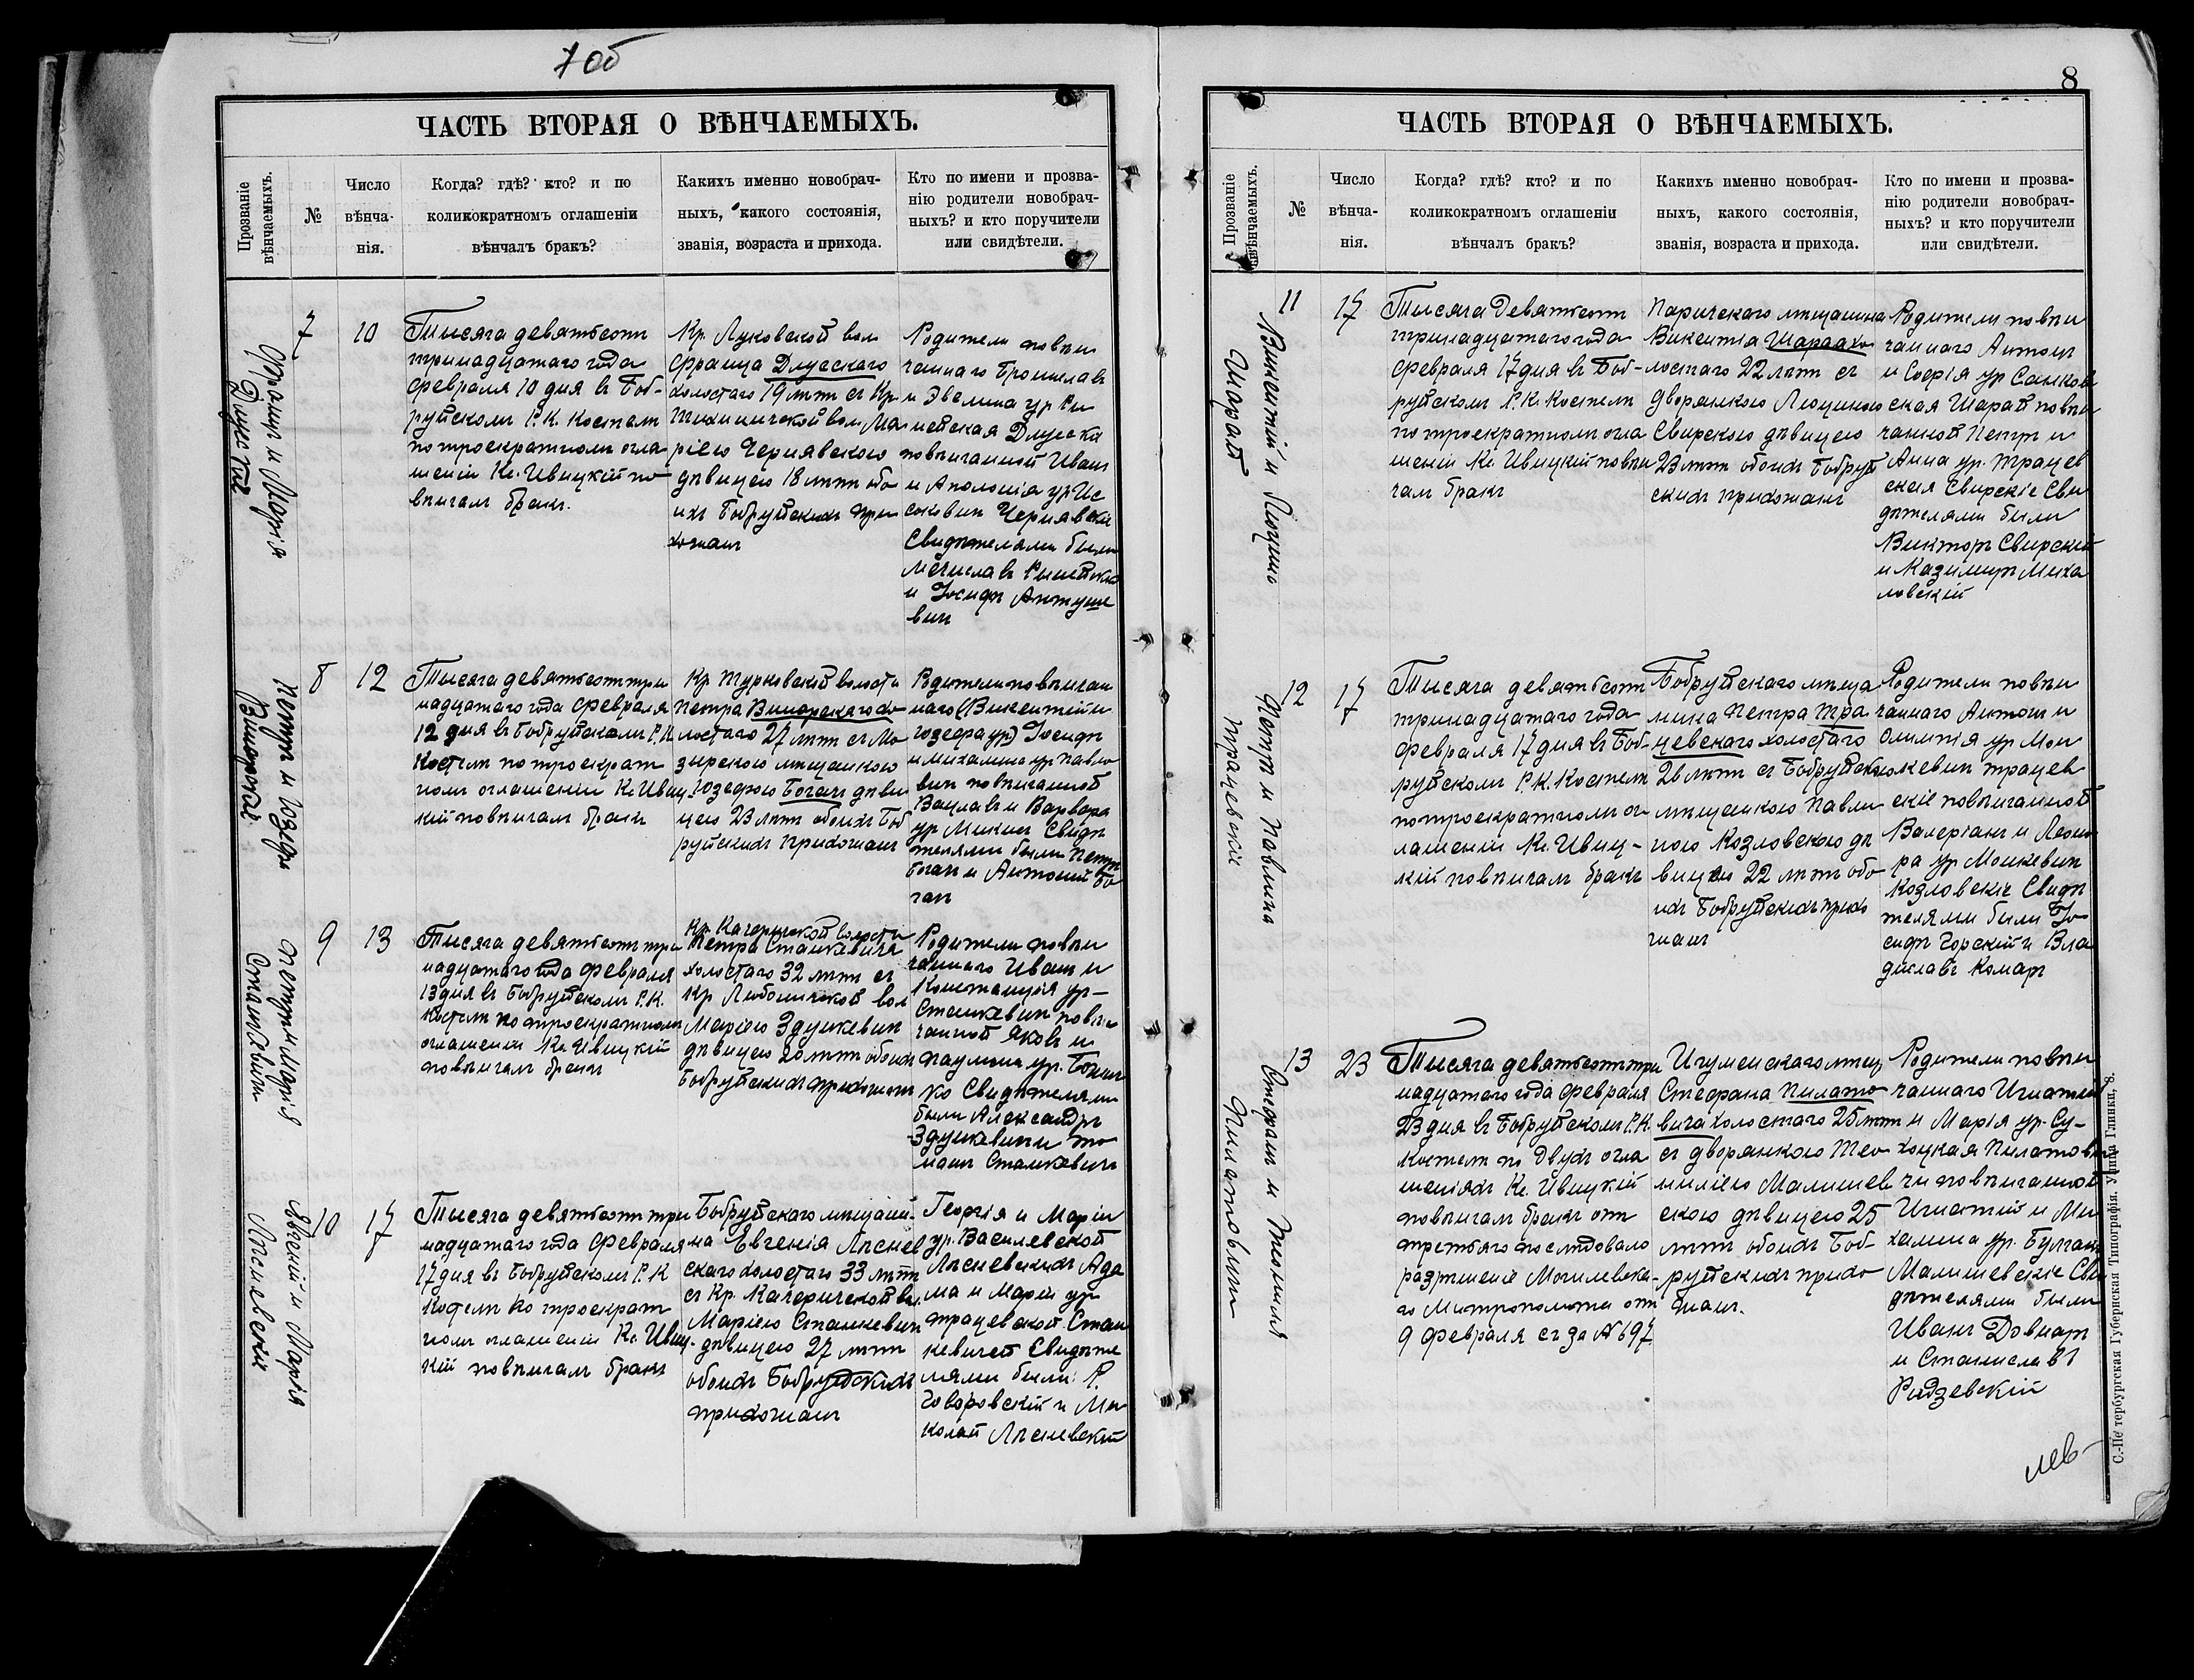 7 об
ЧАСТЬ ВТОРАЯ О ВѢНЧАЕМЫХЪ.
Прозваніе
вѣнчаемыхъ.
№
Число
вѣнча-
нія.
Когда? гдѣ? кто? и по
коликократномъ оглашеніи
вѣнчалъ бракъ?
Какихъ именно новобрач-
ныхъ, какого состоянія,
званія, возраста и прихода.
Кто по имени и прозва-
нію родители новобрач-
ныхъ? и кто поручители
или свидѣтели.
Францъ и Марія
Длускіе
7
10
Тысяча девятьсотъ
тринадцатаго года
февраля 10 дня въ Боб-
руйскомъ Р. К. Костелѣ
по троекратномъ огла
шеніи Кс. Ивицкій по
вѣнчалъ бракъ.
Кр. Луковской вол
Франца Длусского
холостаго 19 лѣтъ съ Кр
Тихиничской вол. Ма
ріею Чернявскою
дѣвицею 18 лѣтъ обо
ихъ Бобруйскихъ при
хожанъ
Родители повѣн
чаннаго Брониславъ
и Эвелина ур
Длуски
повѣнчанной Иванъ
и Аполонія ур Ис
соковичъ Чернявскіе
Свидѣтелями были
Мечиславъ
и Іосифъ Антуше
вичъ
Петръ и Юзефа
Винорскіе
8
12
Тысяча девятьсотъ три
надцатаго года Февраля
12 дня въ Бобруйскомъ Р.К
Костелѣ по троекрат
номъ оглашеніи Кс Ивиц
кій повѣнчалъ бракъ
Кр Турковской волости
Петра Винорскаго хо
лостаго 27 лѣтъ съ Мо
зырскою мѣщанкою
Юзефою Богачъ дѣви
цею 23 лѣтъ обоихъ Боб
руйскихъ прихожанъ
Родители повѣнчан
наго (Викентій и
Юзефа ур) Іосифъ
и Михалина ур Павло
вичъ повѣнчанной
Вацлавъ и Варвара
ур Микичъ Свидѣ
телями были Петръ
Богачъ и Антоній Бо
гачъ
Петръ и Марія
Станкевичи
9
13
Тысяча девятьсотъ три
надцатаго года Февраля
13 дня въ Бобруйскомъ Р. К.
Костелѣ по троекратномъ
оглашеніи Кс. Ивицкій
повѣнчалъ бракъ
Кр. Качеричской волости
Петра Станкевича
холостаго 32 лѣтъ съ
Кр Любоничской вол
Маріею Здункевичъ
дѣвицею 20 лѣтъ обоихъ
Бобруйскихъ прихожанъ
Родители повѣн
чаннаго Иванъ и
Констанція ур-
Станкевичъ повѣн
чанной Яковъ и
Паулина ур. Божин
ко Свидѣтелями
были Александръ
Здункевичъ и То
машъ Станкевичъ
Евгеній и Марія
Лѣсневскіи
10
17
Тысяча девятьсотъ три
надцатаго года Февраля
17 дня въ Бобруйскомъ Р. К
Костелѣ по троекрат
номъ оглашеніи Кс. Ивиц-
кій повѣнчалъ бракъ
Бобруйскаго мѣщани-
на Евгенія Лѣснев
скаго холостаго 33 лѣтъ
съ Кр. Качеричской вол.
Маріею Станкевичъ
дѣвицею 27 лѣтъ
обоихъ Бобруйскихъ
прихожанъ
Георгія и Маріи
ур. Василевской
Лѣсневскихъ Ада
ма и Маріи ур
Трацевской Стан
кевичей Свидѣте
лями были: Р.
Говоровскій и Ми
колай Лѣсневскій
8
ЧАСТЬ ВТОРАЯ О ВѢНЧАЕМЫХЪ.
Прозваніе
вѣнчаемыхъ.
№
Число
вѣнча-
нія.
Когда? гдѣ? кто? и по
коликократномъ оглашеніи
вѣнчалъ бракъ?
Какихъ именно новобрач-
ныхъ, какого состоянія,
званія, возраста и прихода.
Кто по имени и прозва-
нію родители новобрач-
ныхъ? и кто поручители
или свидѣтели.
Викентій и Люцина
Шарай
11
17
Тысяча Девятьсотъ
тринадцатаго года
февраля 17 дня въ Боб-
руйскомъ Р. К. Костелѣ
по троекратномъ огла
шеніи Кс. Ивицкій повѣн
чалъ бракъ
Паричскаго мѣщанина
Викентія Шарая хо
лостаго 22 лѣтъ съ
дворянкою Люциною
Свирскою дѣвицею
23 лѣтъ обоихъ Бобруй
скихъ прихожанъ
Родители повѣн
чаннаго Антонъ
и Софія ур Санков
ская Шарай повѣн
чанной Петръ и
Анна ур. Трацев
ская Свирскіе Сви
дѣтелями были
Викторъ Свирскій
и Казимиръ Миха
ловскій
Петръ и Павлина
Трацевскіе
12
17
Тысяча девятьсотъ
тринадцатаго года
февраля 17 дня въ Боб-
руйскомъ Р. К. Костелѣ
по троекратномъ ог
лашеніи Кс. Ивиц-
кій повѣнчалъ бракъ
Бобруйскаго мѣща
нина Петра Тра
цевскаго холостаго
26 лѣтъ съ Бобруйскою
мѣщанкою Павли
ною Козловскою дѣ
вицею 22 лѣтъ обо
ихъ Бобруйскихъ прихо
жанъ
Родители повѣн
чаннаго Антонъ и
Олимпія ур Мон
кевичъ Трацев
скіе повѣнчанной
Валеріанъ и Леоно
ра ур Монкевичъ
Козловскіе Свидѣ
телями были Іо-
сифъ Горскій и Вла
диславъ Комаръ
Стефанъ и Теофилія
Пилатовичи
13
23
Тысяча девятьсотъ три
надцатаго года февраля
23 дня въ Бобруйскомъ Р.К.
Костелѣ по двухъ огла
шеніяхъ Кс. Ивицкій
повѣнчалъ бракъ отъ
третьяго послѣдовало
разрѣшеніе Могилевска-
го Митрополита отъ
9 февраля с г за № 697.
Игуменскаго мѣщ.
Стефана Пилато
вича холостаго 25 лѣтъ
съ дворянкою Тео
филіею Малишев
скою дѣвицею 25
лѣтъ обоихъ Боб-
руйскихъ прихо
жанъ.
Родители повѣн
чаннаго Игнатій
и Марія ур. Су-
хоцкая Пилатови
чи повѣнчанной
Игнатій и Ми
халина ур. Булгакъ
Малишевскіе Сви
дѣтелями были
Иванъ Довнаръ
и Станиславъ
Радзевскій
лев-
С.-Петербургская Губернская Типографія. Улица Глинки, 8.